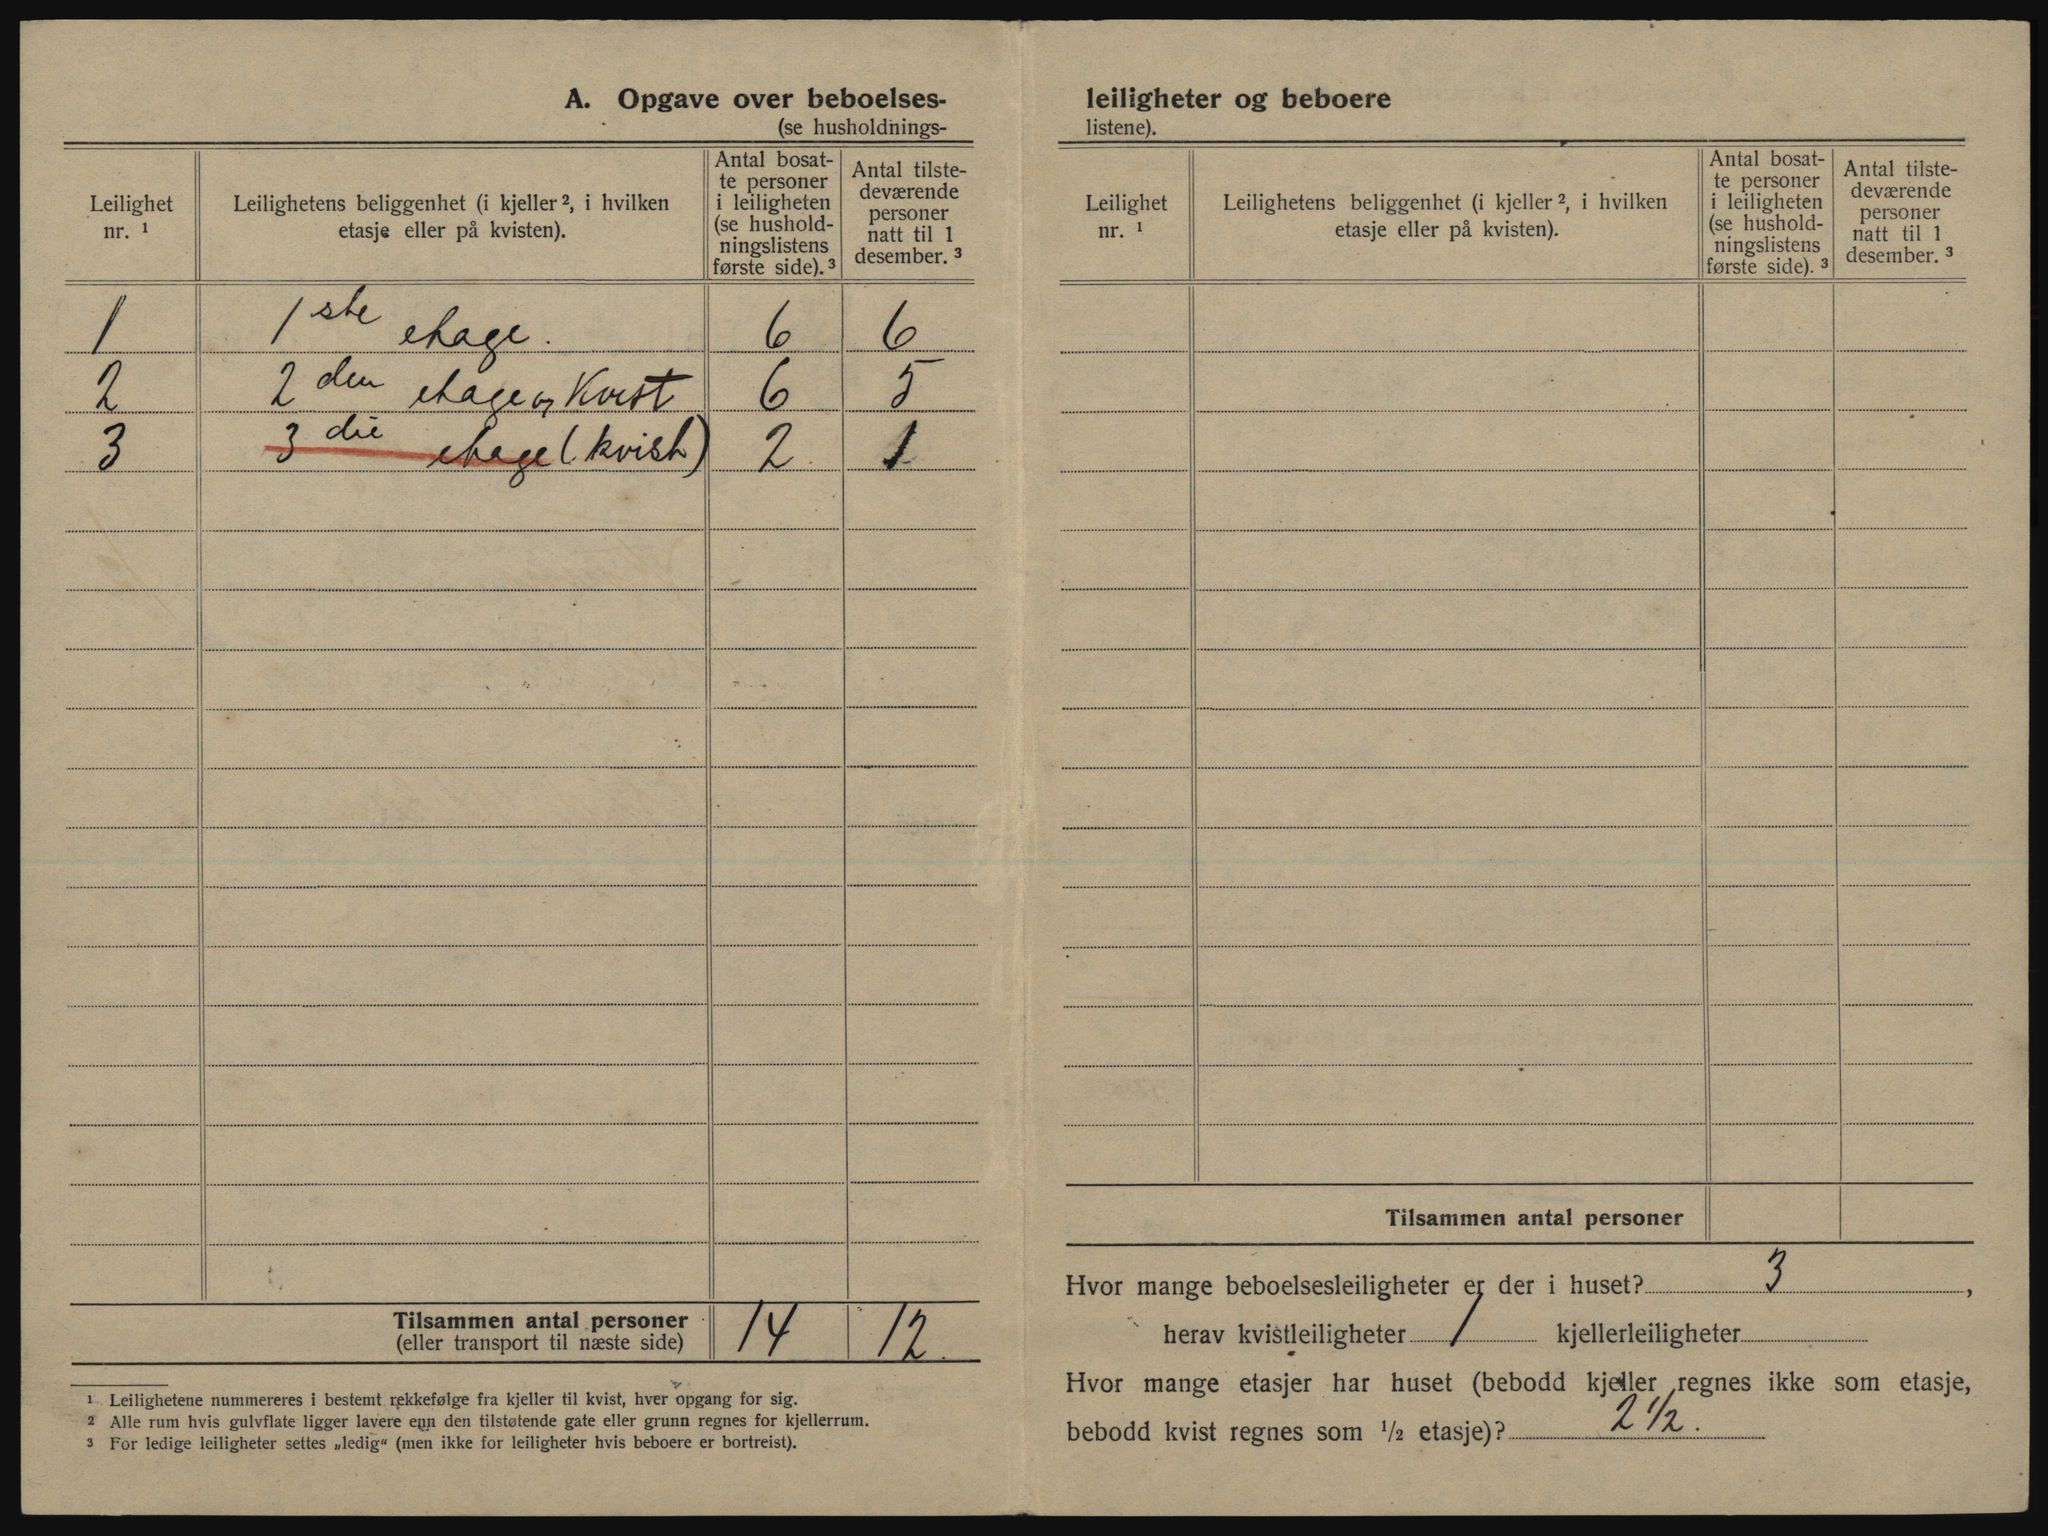 A. Opgave over beboelses-
(se husholdnings-
Leilighet nr. ¹
Leilighetens beliggenhet (i kjeller ², i hvilken etasje eller på kvisten).
Antal bosat-
te personer
i leiligheten
(se hushold-
ningslistens
første side). ³
Antal tilste-
deværende
personer
natt til 1
desember. ³
1 1ste etage. 6 6
2 2den etage og Kvist 6 5
3 3die etage (kvist) 2 1
Tilsammen antal personer 14 12.
(eller transport til næste side)
¹ Leilighetene nummereres i bestemt rekkefølge fra kjeller til kvist, hver opgang for sig.
² Alle rum hvis gulvflate ligger lavere enn den tilstøtende gate eller grunn regnes for kjellerrum.
³ For ledige leiligheter settes „ledig“ (men ikke for leiligheter hvis beboere er bortreist).
leiligheter og beboere
listene).
Leilighet nr. ¹
Leilighetens beliggenhet (i kjeller ², i hvilken etasje eller på kvisten).
Antal bosat-
te personer
i leiligheten
(se hushold-
ningslistens
første side). ³
Antal tilste-
deværende
personer
natt til 1
desember. ³
Tilsammen antal personer
Hvor mange beboelsesleiligheter er der i huset? 3,
herav kvistleiligheter 1 kjellerleiligheter
Hvor mange etasjer har huset (bebodd kjeller regnes ikke som etasje,
bebodd kvist regnes som ½ etasje)? 2 ½.